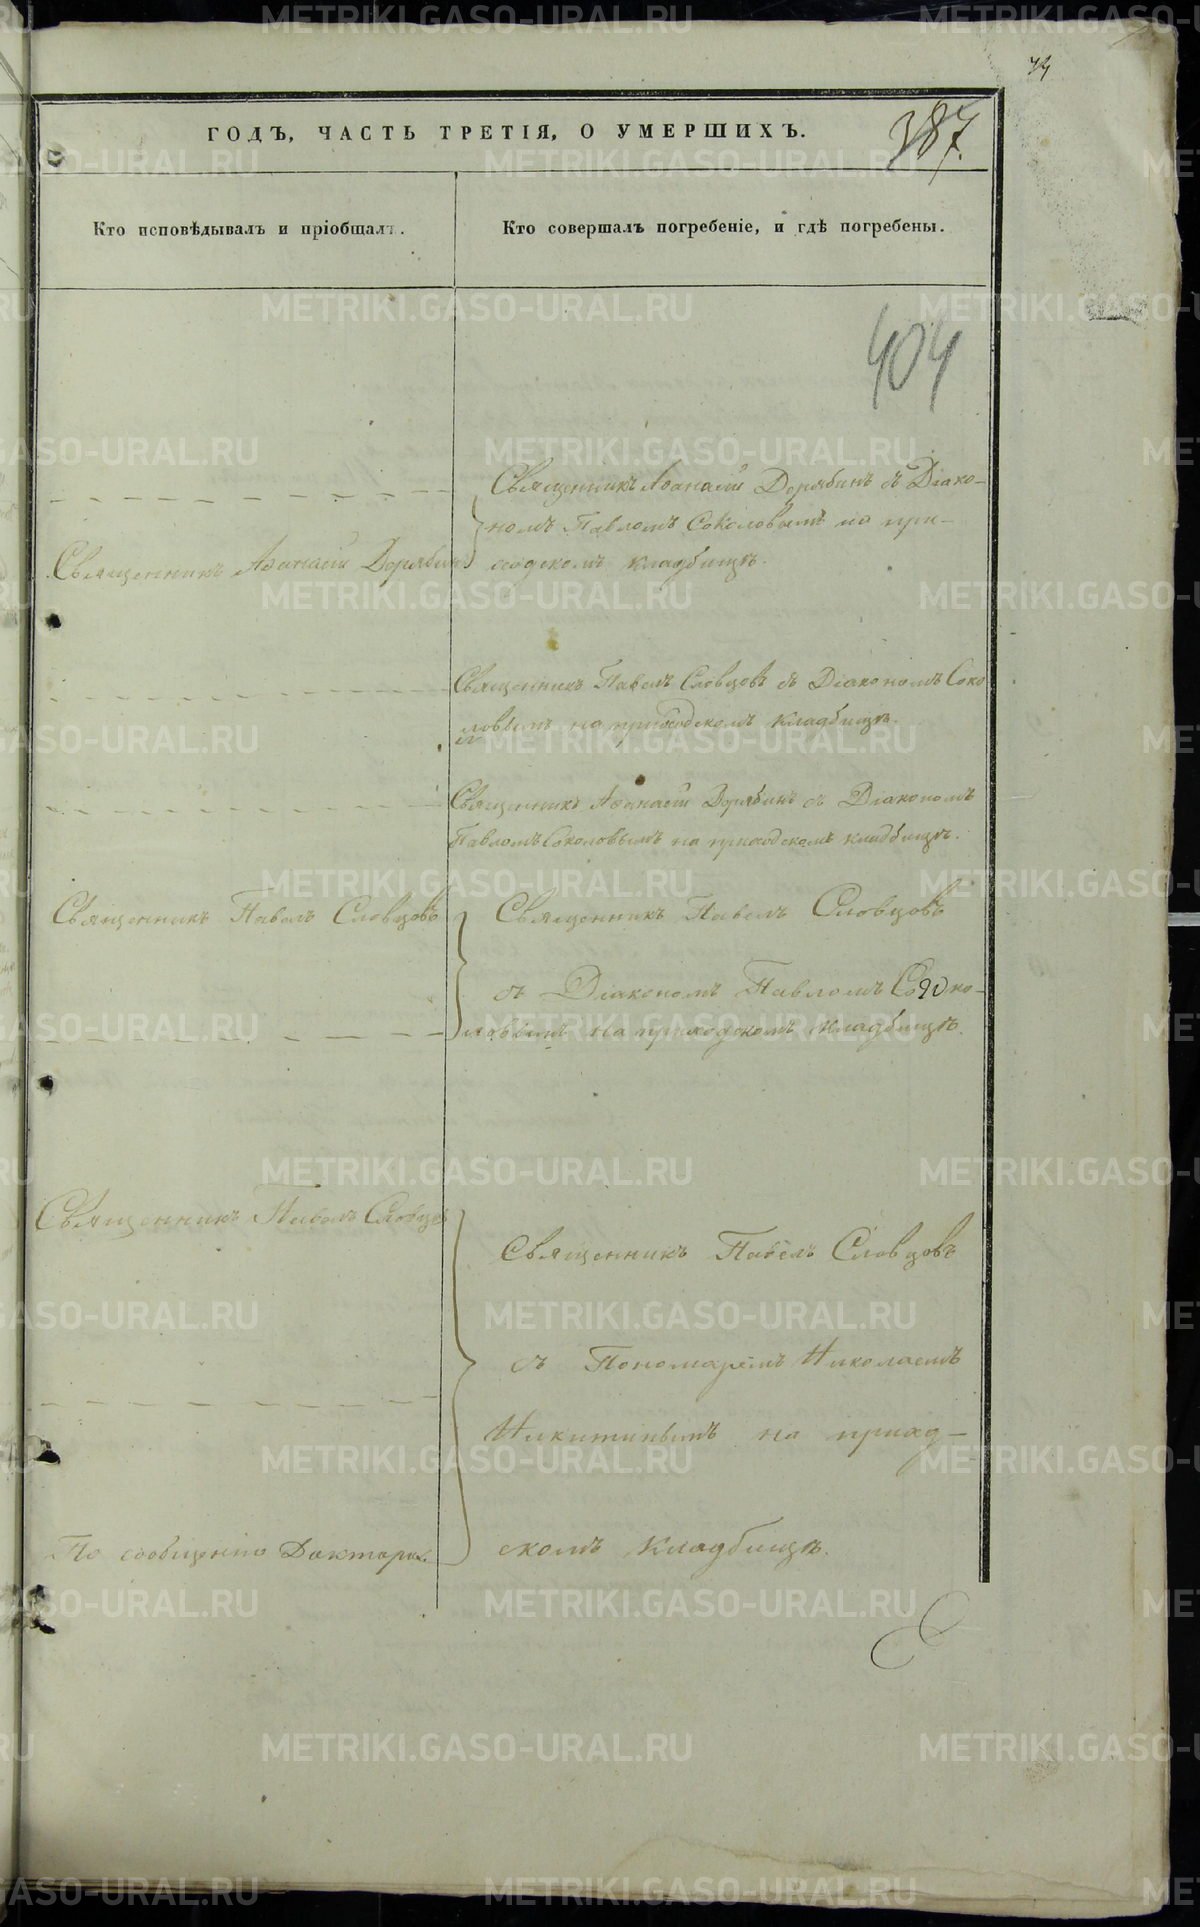 44
ГОДЪ, ЧАСТЬ ТРЕТІЯ, О УМЕРШИХЪ.
387.
Кто исповѣдывалъ и пріобщалъ.
Кто совершалъ погребеніе, и гдѣ погребены.
404
Священникъ Аѳанасій Дерябинъ съ Діако-
номъ Павломъ Соколовымъ на при-
ходскомъ кладбищѣ.
Священникъ Аѳанасій Дерябинъ
Священникъ Павелъ Словцовъ съ Діакономъ Соко
ловымъ на приходскомъ кладбищѣ.
Священникъ Аѳанасій Дерябинъ съ Діакономъ
Павломъ Соколовымъ на приходскомъ кладбищѣ.
Священникъ Павелъ Словцовъ
Священникъ Павелъ Словцовъ
съ Діакономъ Павломъ Соко-
ловымъ на приходскомъ кладбищѣ.
Священникъ Павелъ Словцовъ
Священникъ Павелъ Словцовъ
съ Пономаремъ Николаемъ
Никитинымъ на приход-
скомъ кладбищѣ.
По сообщенію Доктора
METRIKI.GASO-URAL.RU